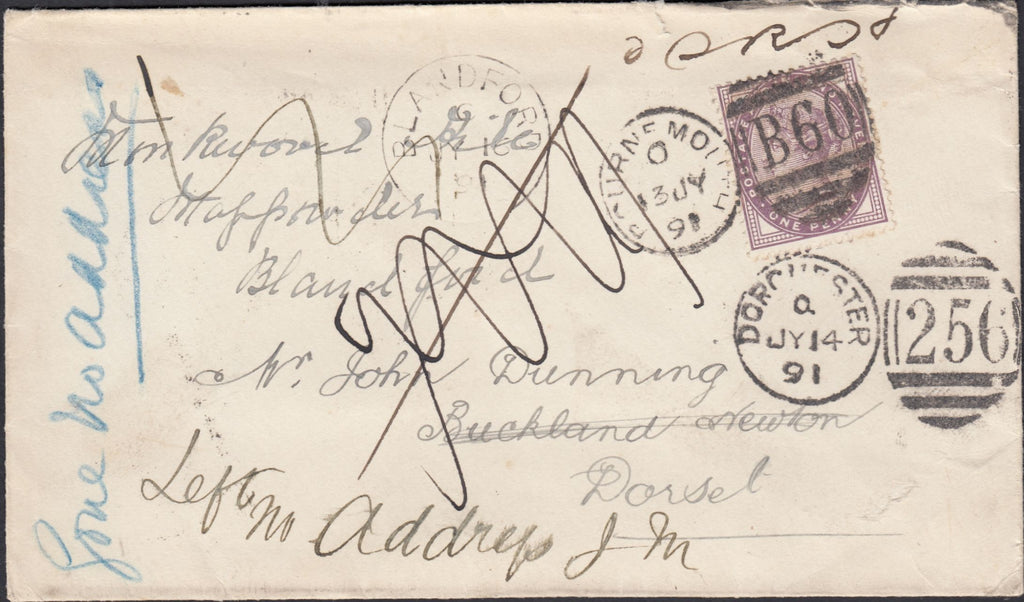 BLANDFORD
JY 16
BOURNEMOUTH
O
13 JY
91
B60
POSTAGE
ONE PENNY
Monkwood Hill
Mappowder
Blandford
DORCHESTER
Q
JY 14
91
256
Mr. John Dunning
Buckland Newton
Dorset
Left no Address J M
Gone no address